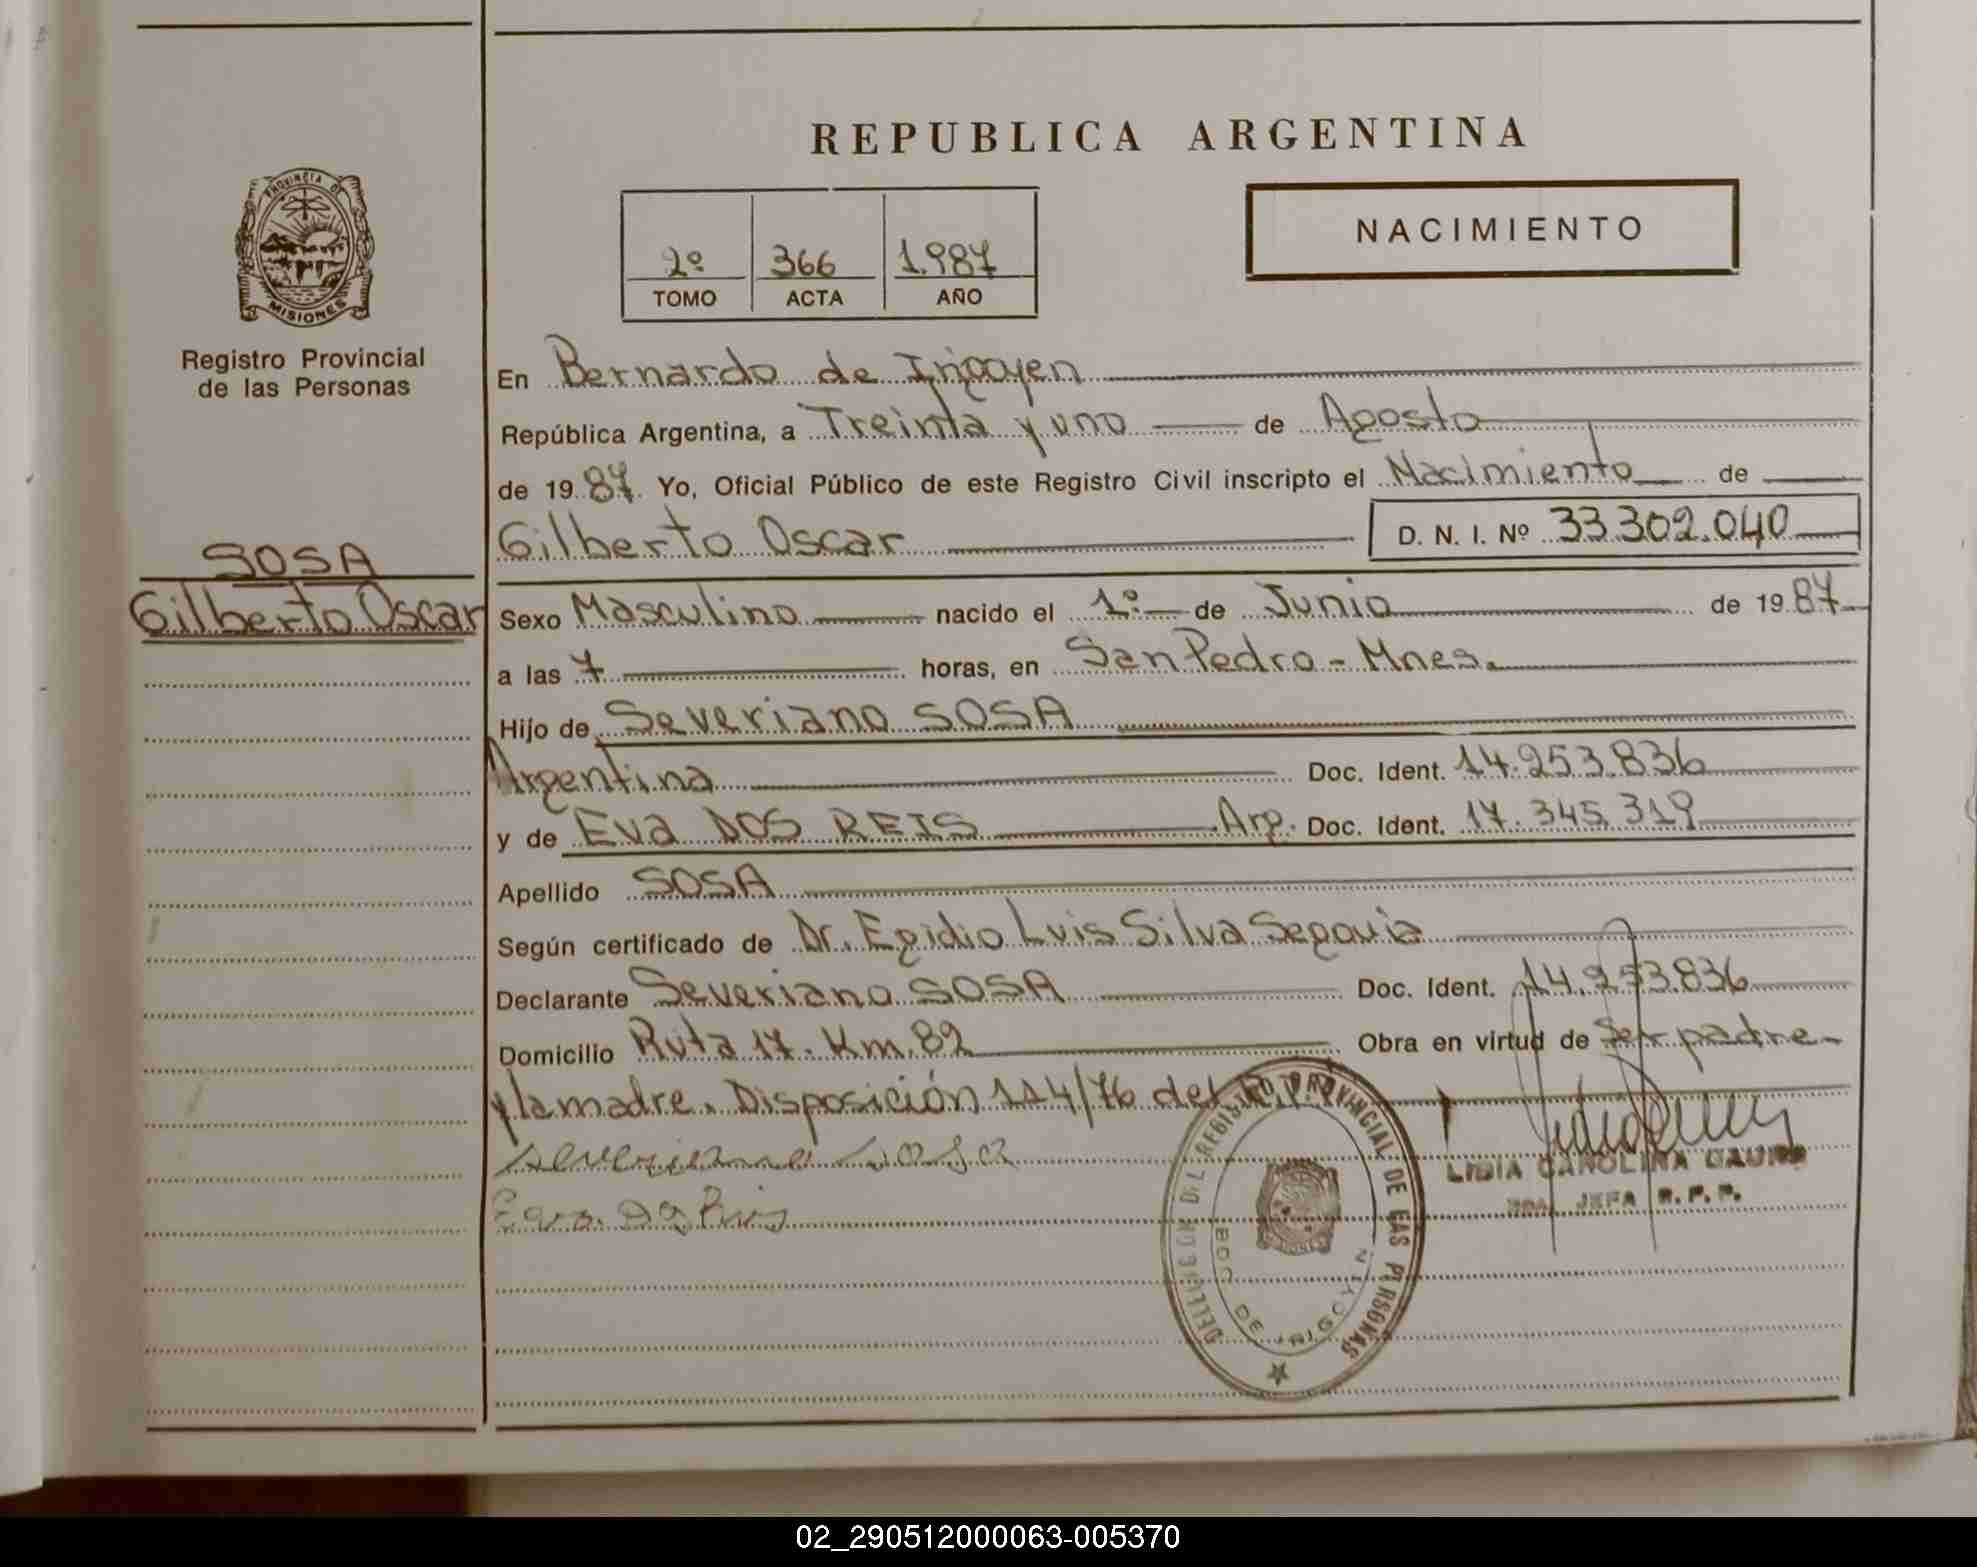 REPUBLICA ARGENTINA
PROVINCIA DE
MISIONES
Registro Provincial
de las Personas
2º 366 1.987
TOMO ACTA AÑO
NACIMIENTO
En Bernardo de Irigoyen
República Argentina, a Treinta y uno de Agosto
de 1987. Yo, Oficial Público de este Registro Civil inscripto el Nacimiento de
Gilberto Oscar D. N. I. Nº 33.302.040
SOSA
Gilberto Oscar
Sexo Masculino nacido el 1º de Junio de 1987
a las 7 horas, en San Pedro - Mnes.
Hijo de Severiano SOSA
Argentina Doc. Ident. 14.253.836
y de Eva DOS REIS Arg. Doc. Ident. 17.345.319
Apellido SOSA
Según certificado de Dr. Egidio Luis Silva Segovia
Declarante Severiano SOSA Doc. Ident. 14.253.836
Domicilio Ruta 17. Km. 82 Obra en virtud de Ser padre
y la madre. Disposición 114/76 del R.P.P.
Severiano Sosa
LIDIA CAROLINA
JEFA R. P. P.
DELEGACION DEL REGISTRO PROVINCIAL DE LAS PERSONAS
BDO. DE IRIGOYEN
02_290512000063-005370